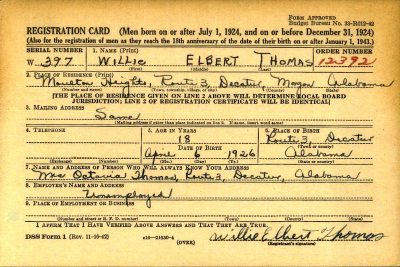 FORM APPROVED
Budget Bureau No. 33-R012-42
REGISTRATION CARD (Men born on or after July 1, 1924, and on or before December 31, 1924)
(Also for the registration of men as they reach the 18th anniversary of the date of their birth on or after January 1, 1943.)
SERIAL NUMBER 1. NAME (Print) ORDER NUMBER
W 397 WILLIE ELBERT THOMAS 12392
2. PLACE OF RESIDENCE (Print)
Moulton Heights, Route 3, Decatur, Morgan Alabama
(Number and street) (Town, township, village, or city) (County) (State)
[THE PLACE OF RESIDENCE GIVEN ON LINE 2 ABOVE WILL DETERMINE LOCAL BOARD
JURISDICTION; LINE 2 OF REGISTRATION CERTIFICATE WILL BE IDENTICAL]
3. MAILING ADDRESS
Same
(Mailing address if other than place indicated on line 2. If same, insert word same)
4. TELEPHONE 5. AGE IN YEARS 6. PLACE OF BIRTH
18 Route 3, Decatur
DATE OF BIRTH (Town or county)
April 1926 Alabama
(Exchange) (Number) (Mo.) (Day) (Yr.) (State or country)
7. NAME AND ADDRESS OF PERSON WHO WILL ALWAYS KNOW YOUR ADDRESS
Mrs Octavia Thomas, Route 3, Decatur, Alabama
8. EMPLOYER'S NAME AND ADDRESS
Unemployed
9. PLACE OF EMPLOYMENT OR BUSINESS
(Number and street or R. F. D. number) (Town) (County) (State)
I AFFIRM THAT I HAVE VERIFIED ABOVE ANSWERS AND THAT THEY ARE TRUE.
DSS Form 1 (Rev. 11-16-42) 16-21630-4 Willie Elbert Thomas
(OVER) (Registrant's signature)